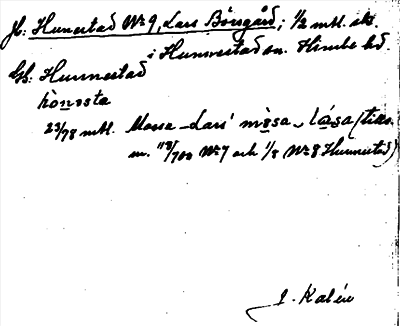 Jb: Hunestad No 9, Lars Börsgård; 1/2 mtl. skt.
i Hunnestad sn. Himle hd.
Gb: Hunnestad
hònəsta
23/78 mtl. Mossa-Lars' mòsa-lása (tills.
m. 113/700 No 7 och 1/8 No 8 Hunnestad)
J. Kalén